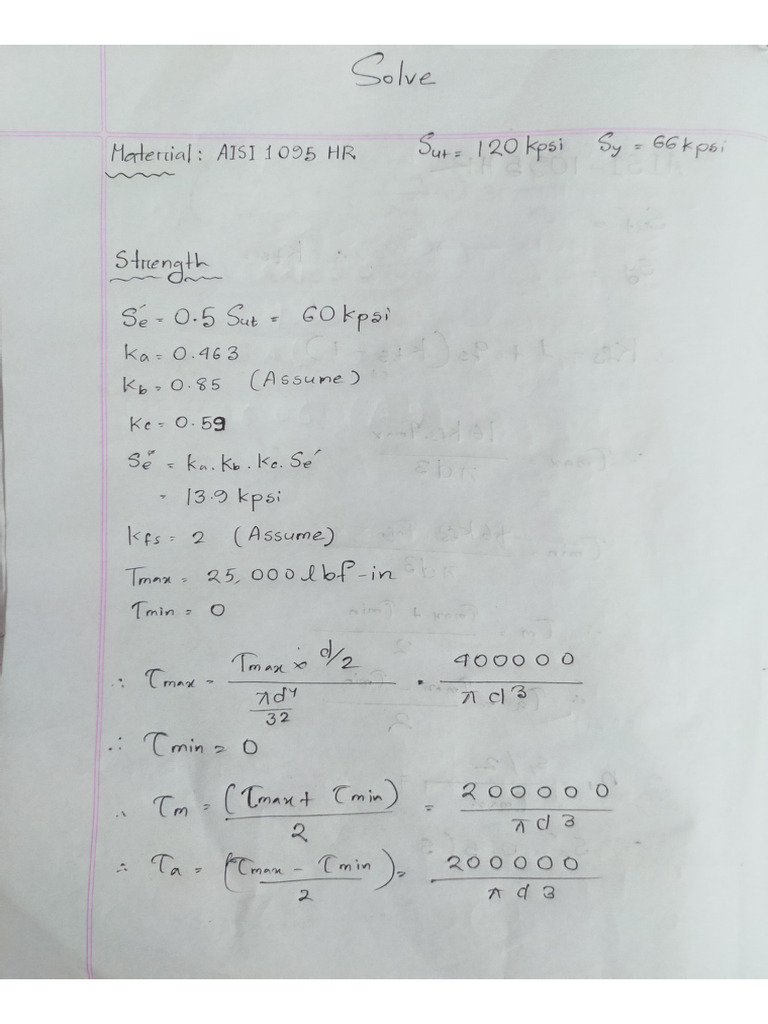 Solve
Material: AISI 1095 HR Sut = 120 kpsi Sy = 66 kpsi
Strength
Sé = 0.5 Sut = 60 kpsi
ka = 0.463
kb = 0.85 (Assume)
kc = 0.59
Se" = ka. kb. kc. Sé
= 13.9 kpsi
kfs = 2 (Assume)
Tmax = 25,000 lbf-in
Tmin = 0
∴ τmax = (Tmax × d/2) / (πd4/32) = 400000 / πd3
∴ τmin = 0
∴ τm = (τmax + τmin) / 2 = 200000 / πd3
∴ τa = (τmax - τmin) / 2 = 200000 / πd3